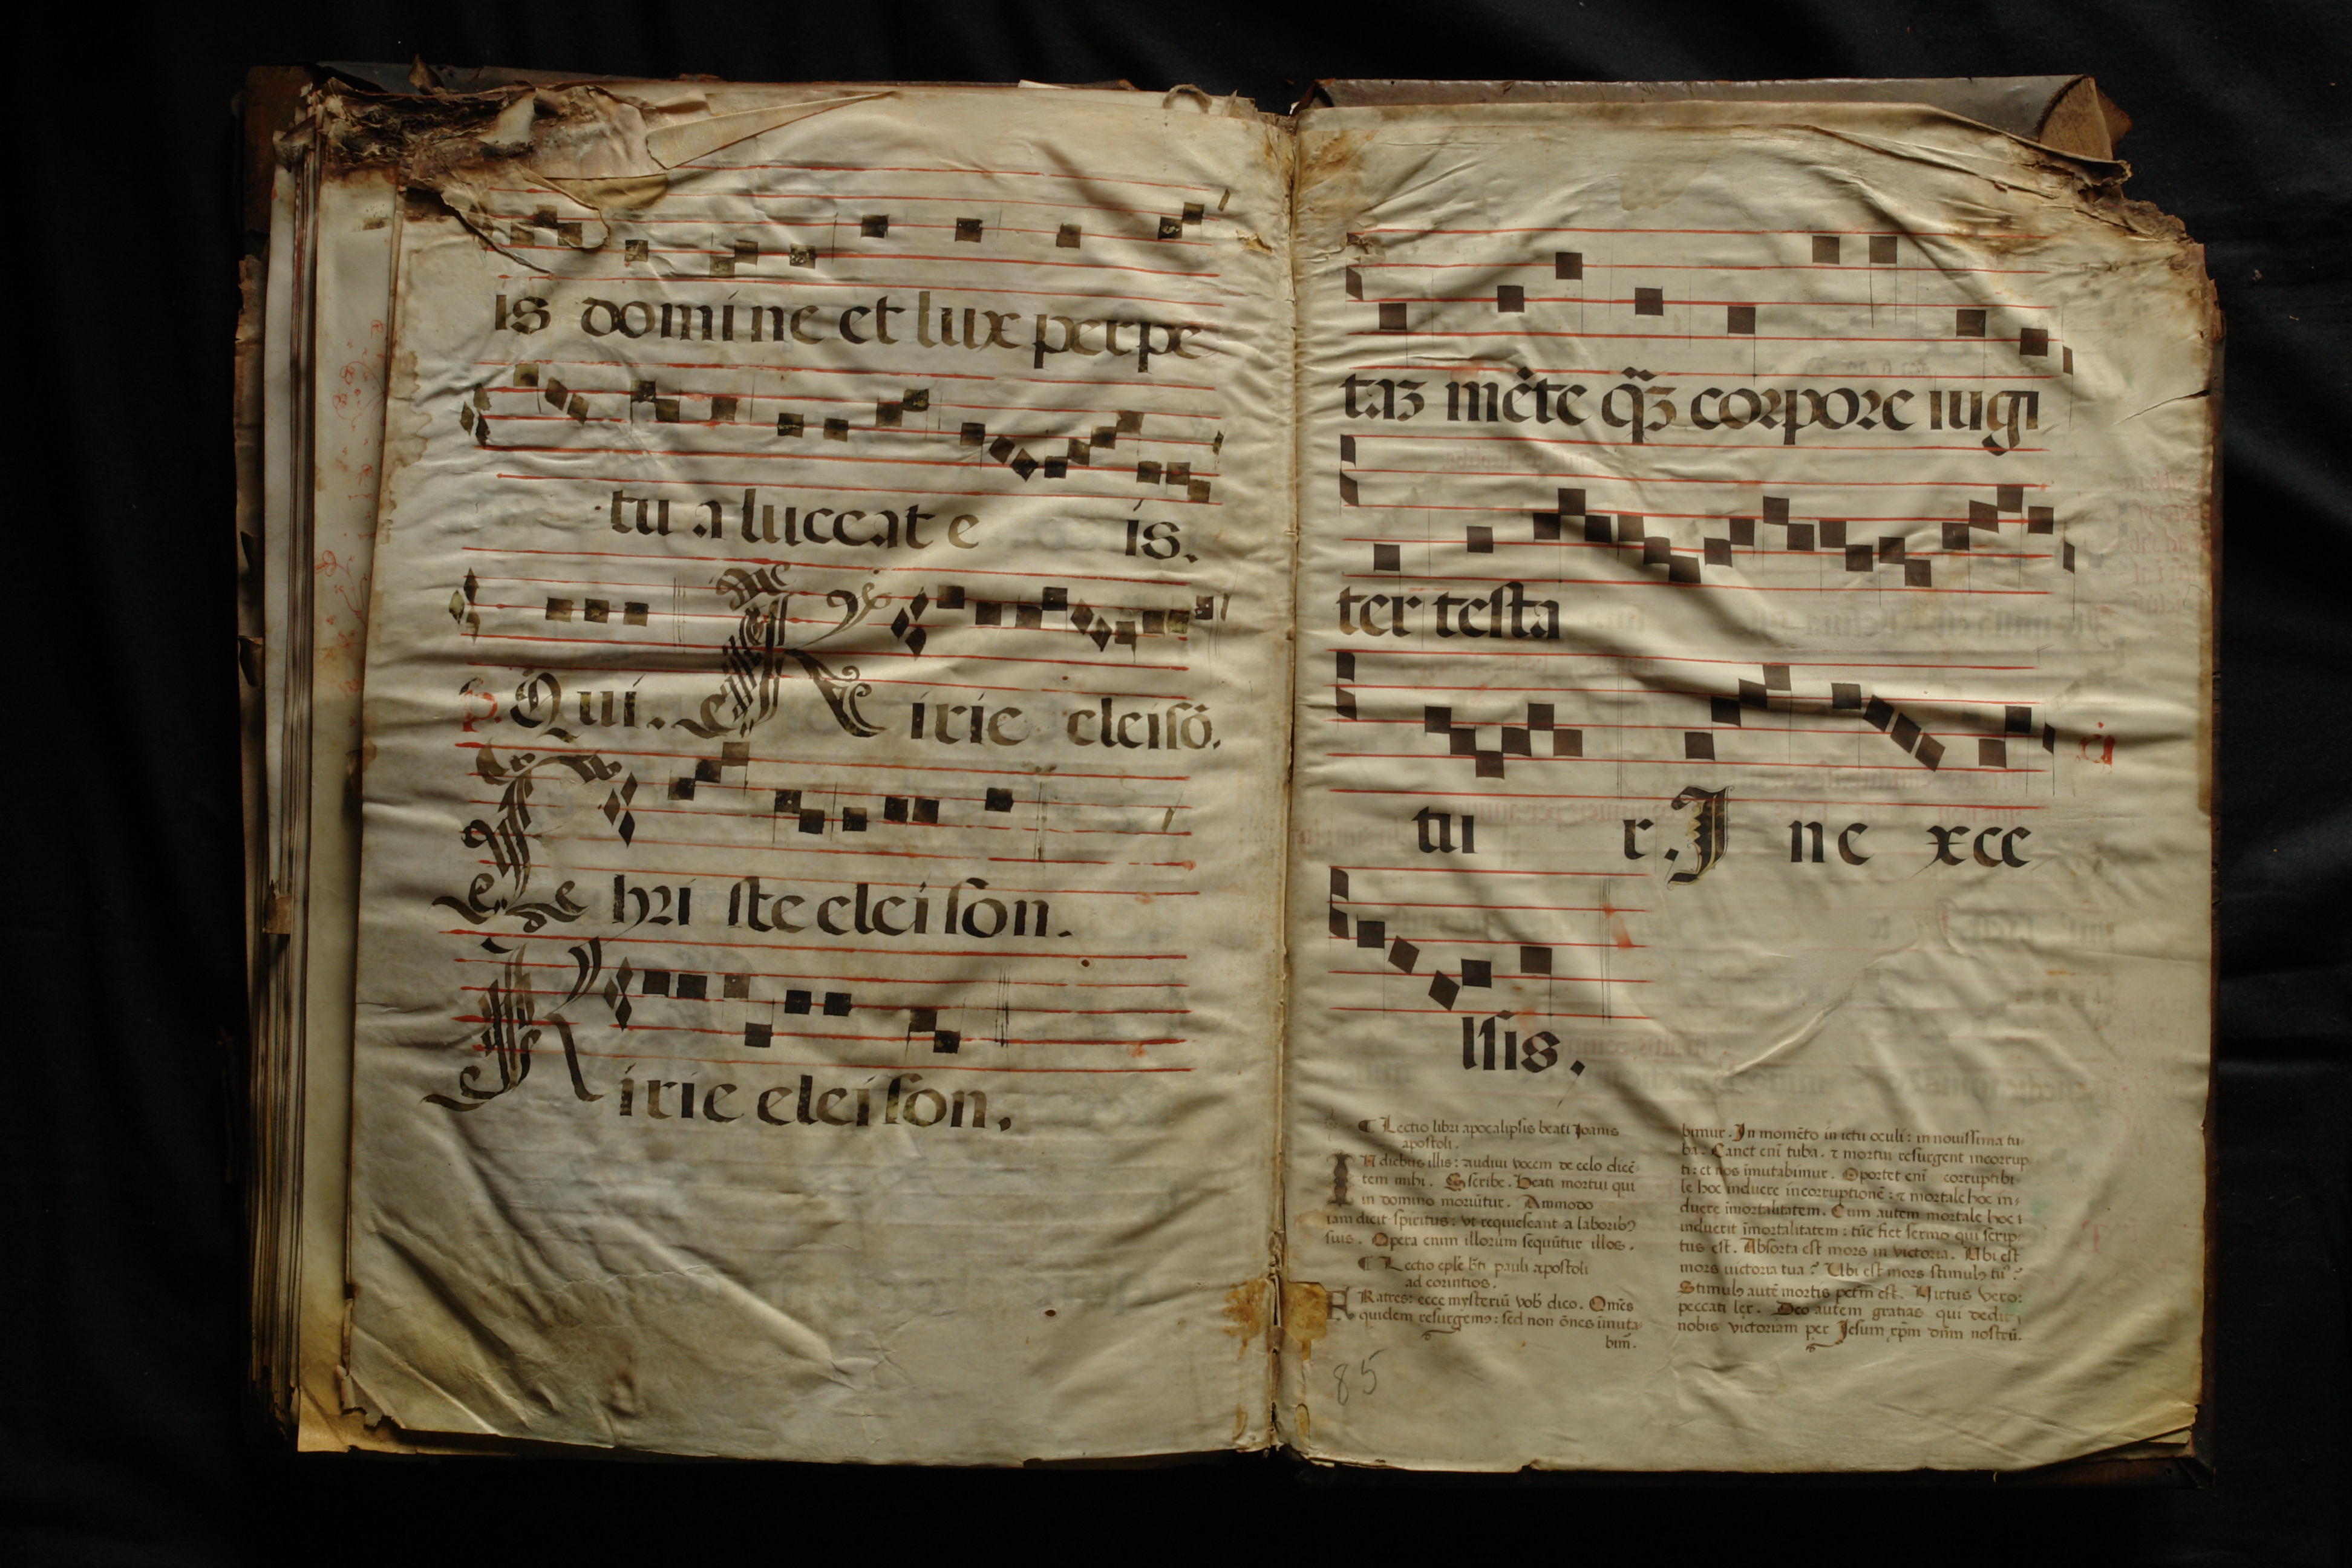 is domine et lux perpe
tu a luceat e is.
p. Qui. Kirie eleisō.
Chri ste elei son.
Kirie elei son.
taʒ mēte q̄ʒ corpore iugi
ter testa
tu r. In e xce
lsis.
¶ Lectio libri apocalipsis beati Joanis
apostoli.
In diebus illis: audiui vocem de celo dicē
tem mihi. Scribe. Beati mortui qui
in domino moriūtur. Ammodo
iam dicit spiritus: vt requiescant a laboribꝰ
suis. Opera enim illorum sequūtur illos.
¶ Lectio eple bti pauli apostoli
ad corintios.
FRatres: ecce mysteriū vob dico. Omēs
quidem resurgemꝰ: sed non ōnes īmuta
bim̄.
bimur. In momēto in ictu oculi: in nouissima tu-
ba. Canet eni tuba. ⁊ mortui resurgent incorrup
ti: et nos imutabimur. Oportet eni corruptibi-
le hoc induere incorruptionē: ⁊ mortale hoc in-
duere imortalitatem. Cum autem mortale hoc i
induerit īmortalitatem: tūc fiet sermo qui scrip
tus est. Absorta est mors in victoria. Ubi est
mors victoria tua? Ubi est mors stimulꝰ tuꝰ?
Stimulꝰ autē mortis petm̄ est. Uirtus vero:
peccati lex. Deo autem gratias qui dedit
nobis victoriam per Jesum xp̄m dn̄m nostrū.
85